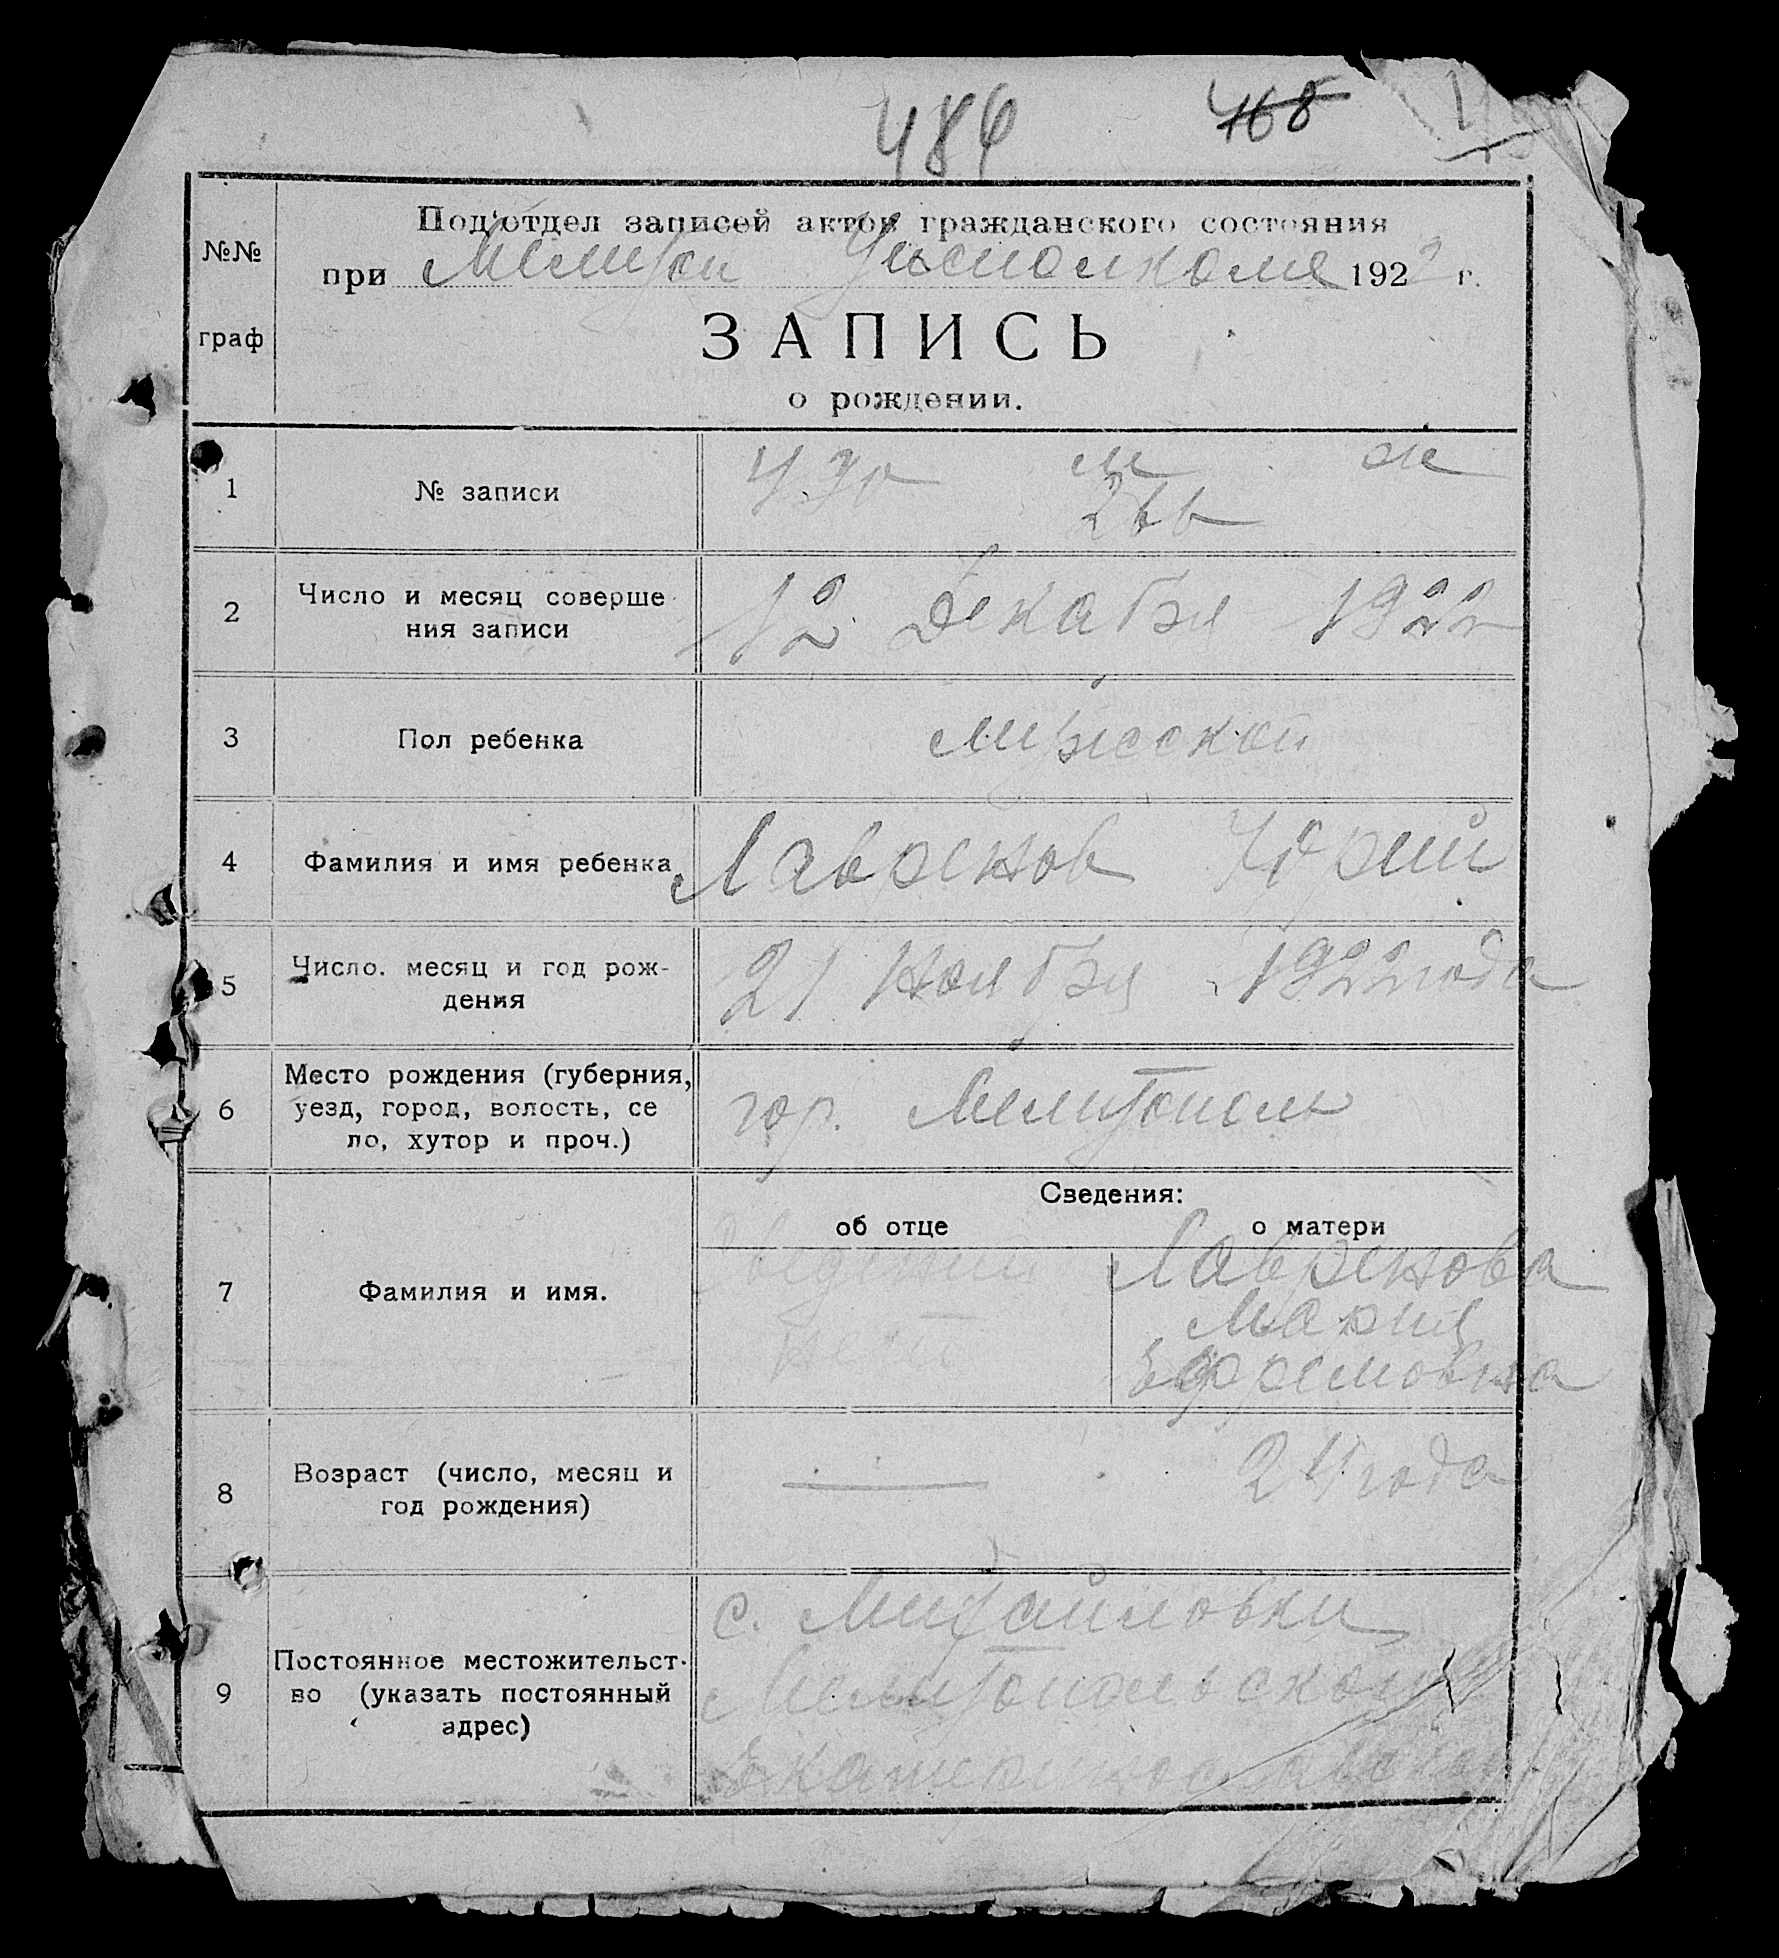 484 468
Под'отдел записей актов гражданского состояния
№№
при Мелитоп Уисполкоме 1922 г.
граф
ЗАПИСЬ
о рождении.
1 № записи 430 м ж
266
2 Число и месяц соверше
ния записи 12 Декабря 1922
3 Пол ребенка мужской
4 Фамилия и имя ребенка Лавренов Юрий
5 Число. месяц и год рож-
дения 21 Ноября 1922 года
Место рождения (губерния,
6 уезд, город, волость, се гор. Мелитополь
ло, хутор и проч.)
Сведения:
об отце о матери
7 Фамилия и имя. Сведений Лавренова
нет Мария
Ефремовна
8 Возраст (число, месяц и
год рождения) — 24 года
с. Михайловки
9 Постоянное местожительст-
во (указать постоянный Мелитопольского
адрес)
Екатеринославской